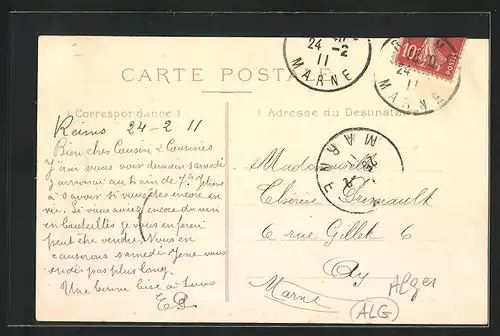 24 -2
11
MARNE
10c
POSTES
24 -2
11
MARN
CARTE POSTALE
Correspondance
Adresse du Destinataire
MARNE
25
2
Reims 24-2 11
Bien chers Cousin & Cousines
J'irai vous voir demain samedi
j'arriverai au train de 7h. Je tiens
à savoir si vous êtes encore en
vie. Si vous avez encore du vin
en bouteilles je vous en ferai
peut être vendre. Nous en
causerons samedi je ne vous
en dis pas plus long.
Une bonne bise à tous
Mademoiselle
Thérèse
6 rue Gillet 6
Ay
Marne
Alger
(ALG)